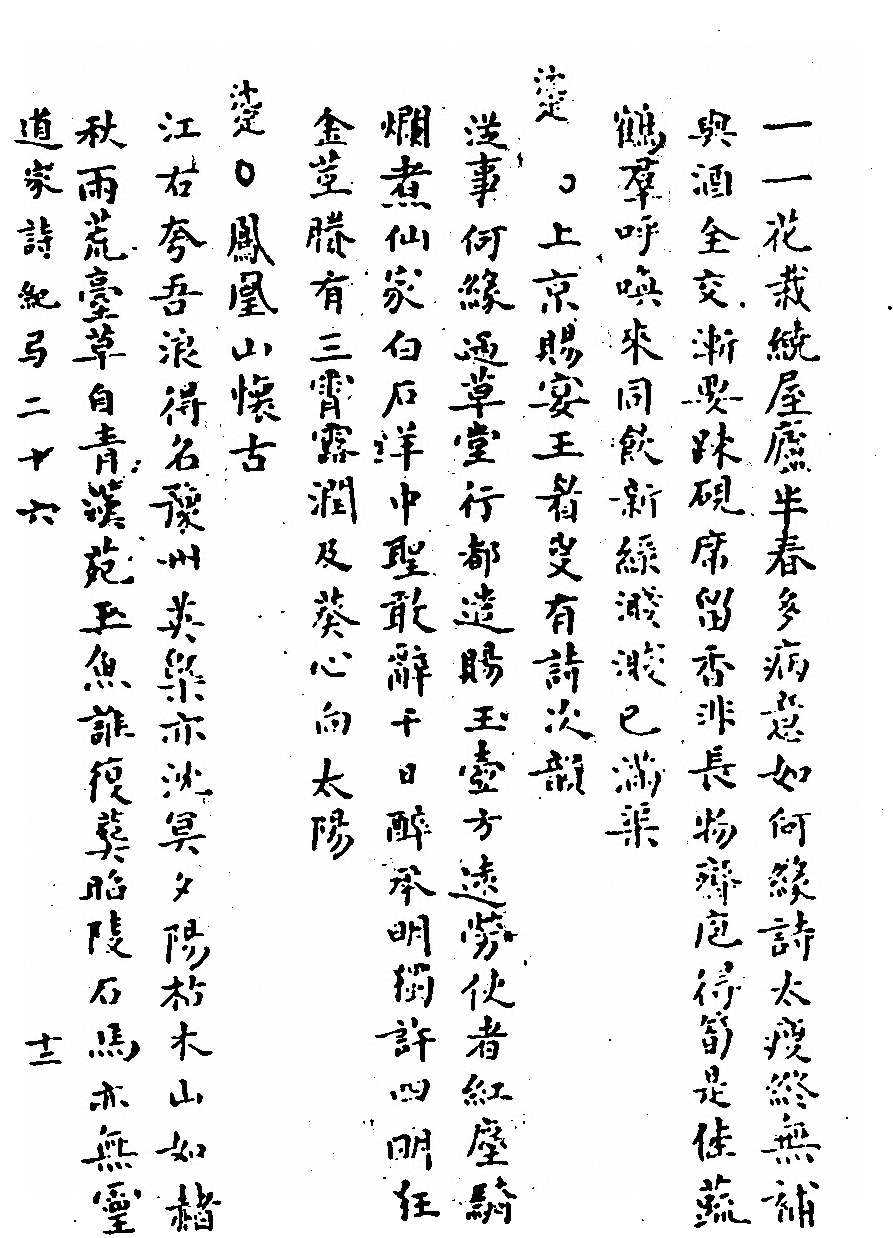 一一花栽繞屋廬半春多病意如何緣詩太瘦終無補
與酒全交漸覺踈硯席留香非長物齋庖得筍是佳蔬
鶴羣呼喚來同飲新綠濺濺已滿渠
○上京賜宴王眷叟有詩次韻
從事何緣過草堂行都遣賜玉壺方遠勞使者紅塵騎
爛煮仙家白石洋中聖敢辭千日醉承明獨許四明狂
金莖賸有三霄露潤及葵心向太陽
○鳳凰山懷古
江右夸吾浪得名豫州英槩亦沈冥夕陽枯木山如赭
秋雨荒臺草自青漢苑玉魚誰復葬昭陵石馬亦無靈
道家詩紀弓二十六
十三